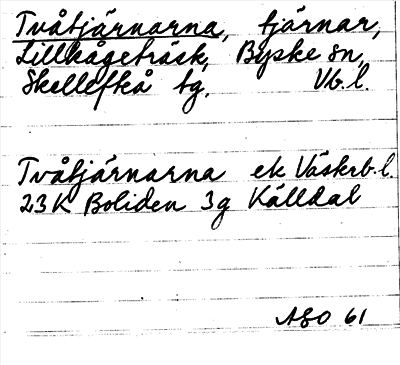 Tvåtjärnarna, tjärnar,
Lillkågeträsk, Byske sn,
Skellefteå tg. Vb. l.
Tvåtjärnarna ek Väskrb. l.
23K Boliden 3g Källdal
ASO 61